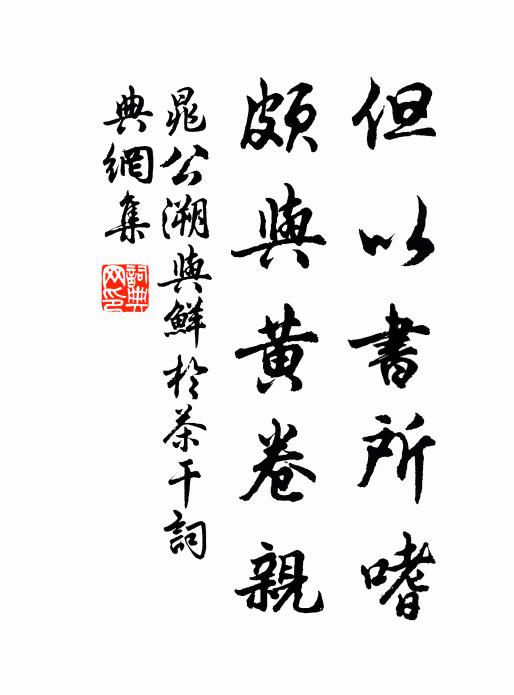 但以書所嗜
頗與黄卷親
晁公溯與鮮於茶干詞
典網集
詞典网印